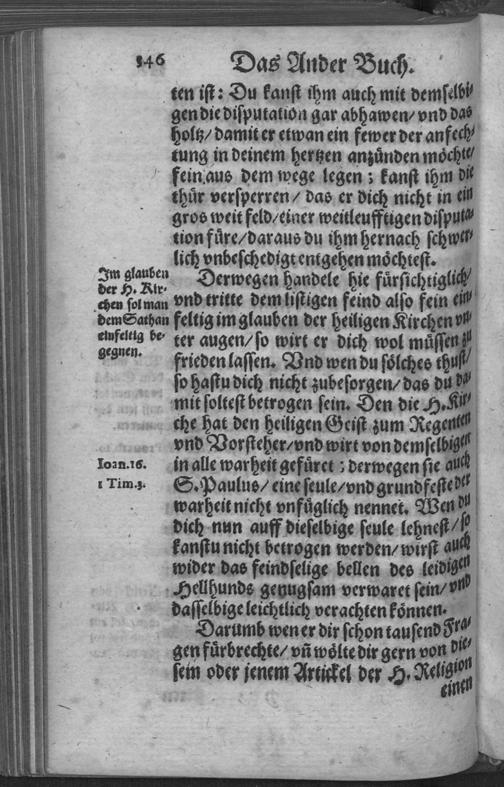 346
Das Ander Buch.
ten ist: Du kanst ihm auch mit demselbi-
gen die disputation gar abhawen/ vnd das
holtz/ damit er etwan ein fewer der anfech-
tung in deinem hertzen anzünden möchte/
fein aus dem wege legen; kanst ihm die
thür versperren/ das er dich nicht in ein
gros weit feld/ einer weitleufftigen disputa-
tion füre/ daraus du ihm hernach schwer-
lich vnbeschedigt entgehen möchtest.
Im glauben
der H. Kir-
chen sol man
dem Sathan
einfeltig be-
gegnen.
Derwegen handele hie fürsichtiglich/
vnd tritte dem listigen feind also fein ein-
feltig im glauben der heiligen Kirchen vn-
ter augen/ so wirt er dich wol müssen zu
frieden lassen. Vnd wen du sölches thust/
so hastu dich nicht zubesorgen/ das du da-
mit soltest betrogen sein. Den die H. Kir-
che hat den heiligen Geist zum Regenten
vnd Vorsteher/ vnd wirt von demselbigen
Ioan.16.
in alle warheit gefüret; derwegen sie auch
1 Tim.3.
S. Paulus/ eine seule/ vnd grundfeste der
warheit nicht vnfüglich nennet. Wen du
dich nun auff dieselbige seule lehnest/ so
kanstu nicht betrogen werden/ wirst auch
wider das feindselige bellen des leidigen
Hellhunds genugsam verwaret sein/ vnd
dasselbige leichtlich verachten können.
Darumb wen er dir schon tausend Fra-
gen fürbrechte/ vn̄ wölte dir gern von die-
sem oder jenem Artickel der H. Religion
einen